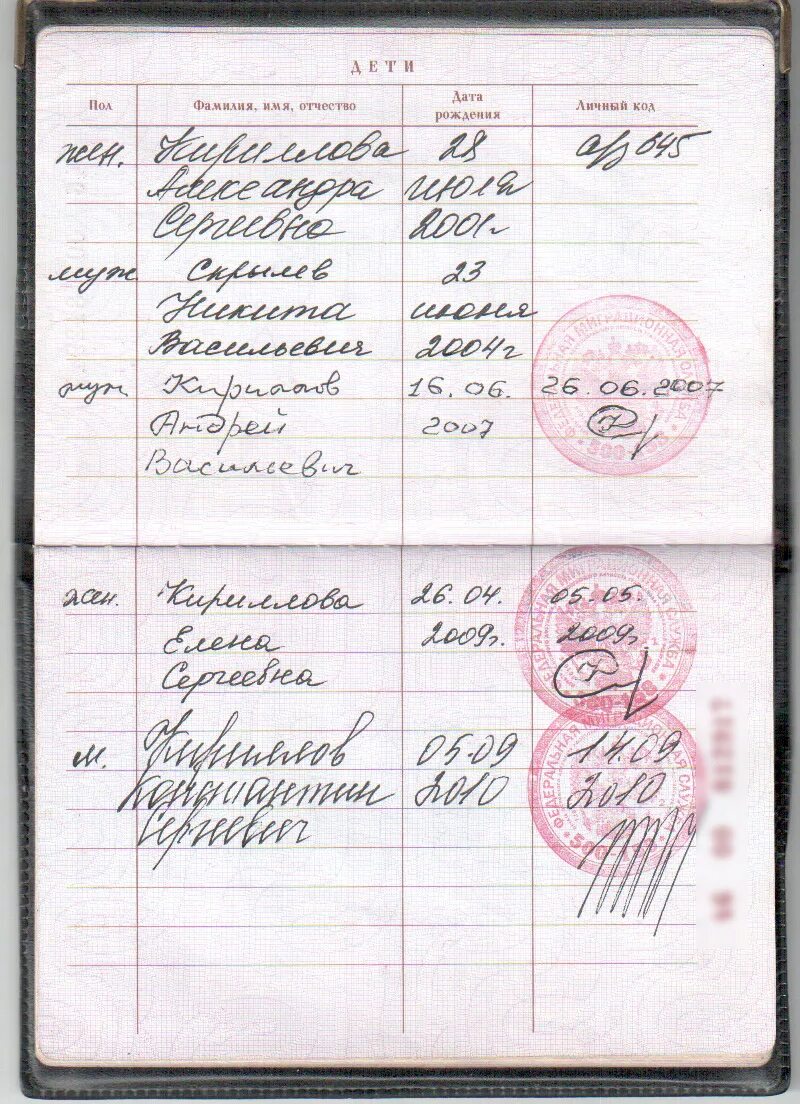 ДЕТИ
Пол Фамилия, имя, отчество Дата рождения Личный код
жен. Кириллова 28
Александра июля
Сергеевна 2001г
муж Скрылев 23
Никита июня
Васильевич 2004г
муж Кириллов 16.06. 26.06.2007
Андрей 2007
Васильевич
жен. Кириллова 26.04. 05.05.
Елена 2009г. 2009г.
Сергеевна
м. Кириллов 05.09 14.09
Константин 2010 2010
Сергеевич